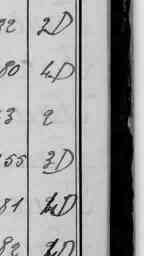 32 2D
80 4D
3 2
155 3D
81 4D
82 2D